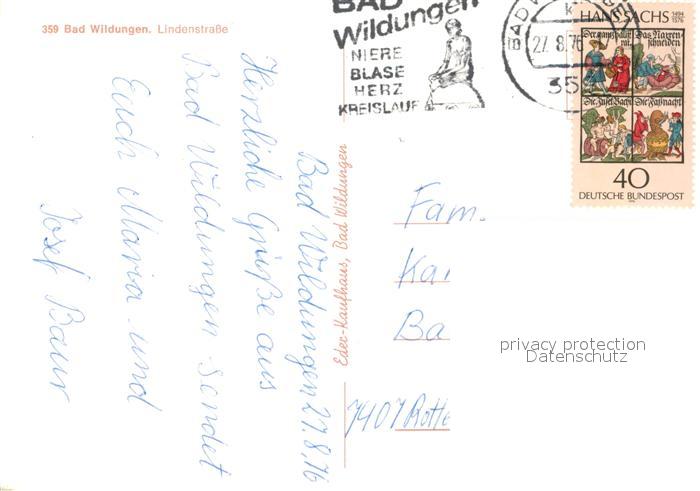 359 Bad Wildungen. Lindenstraße
BAD
Wildungen
NIERE
BLASE
HERZ
KREISLAUF
27. 8. 76
359
HANS SACHS 1494 1576
Der ganz haußrat
Das Narrenschneiden
Die Insel Bachi
Die Faßnacht
40
DEUTSCHE BUNDESPOST
Bad Wildungen 27.8.76
Herzliche Grüße aus
Bad Wildungen sendet
Euch Maria und
Josef Baur
Eder-Kaufhaus, Bad Wildungen
Fam.
Kar
Ba
7407 Rotte
privacy protection
Datenschutz